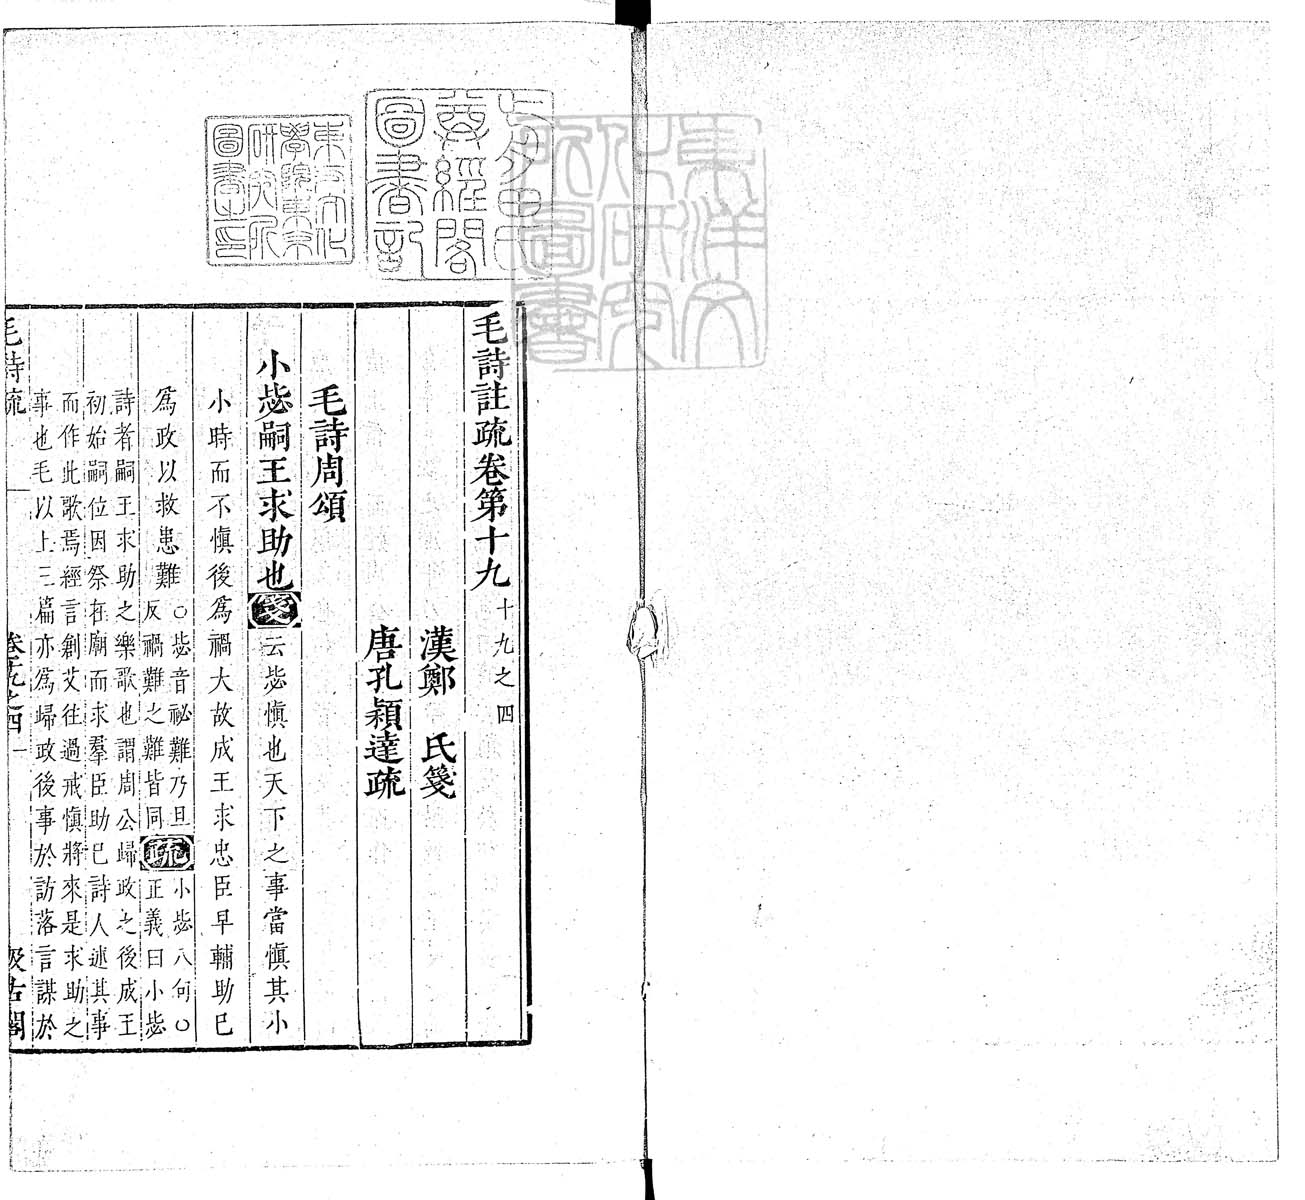 東洋文化研究所圖書
毛詩註疏卷第十九 十九之四
漢鄭 氏箋
唐孔穎達疏
毛詩周頌
小毖嗣王求助也箋云毖慎也天下之事當慎其小
小時而不慎後爲禍大故成王求忠臣早輔助已
爲政以救患難○毖音祕難乃旦
反禍難之難皆同疏小毖八句○
正義曰小毖
詩者嗣王求助之樂歌也謂周公歸政之後成王
初始嗣位因祭在廟而求羣臣助已詩人述其事
而作此歌焉經言創艾往過戒慎將來是求助之
事也毛以上三篇亦爲歸政後事於訪落言謀於
毛詩疏 卷十九之四 一 汲古閣
尊經閣
圖書記
東方文化
學院東京
研究所
圖書之印